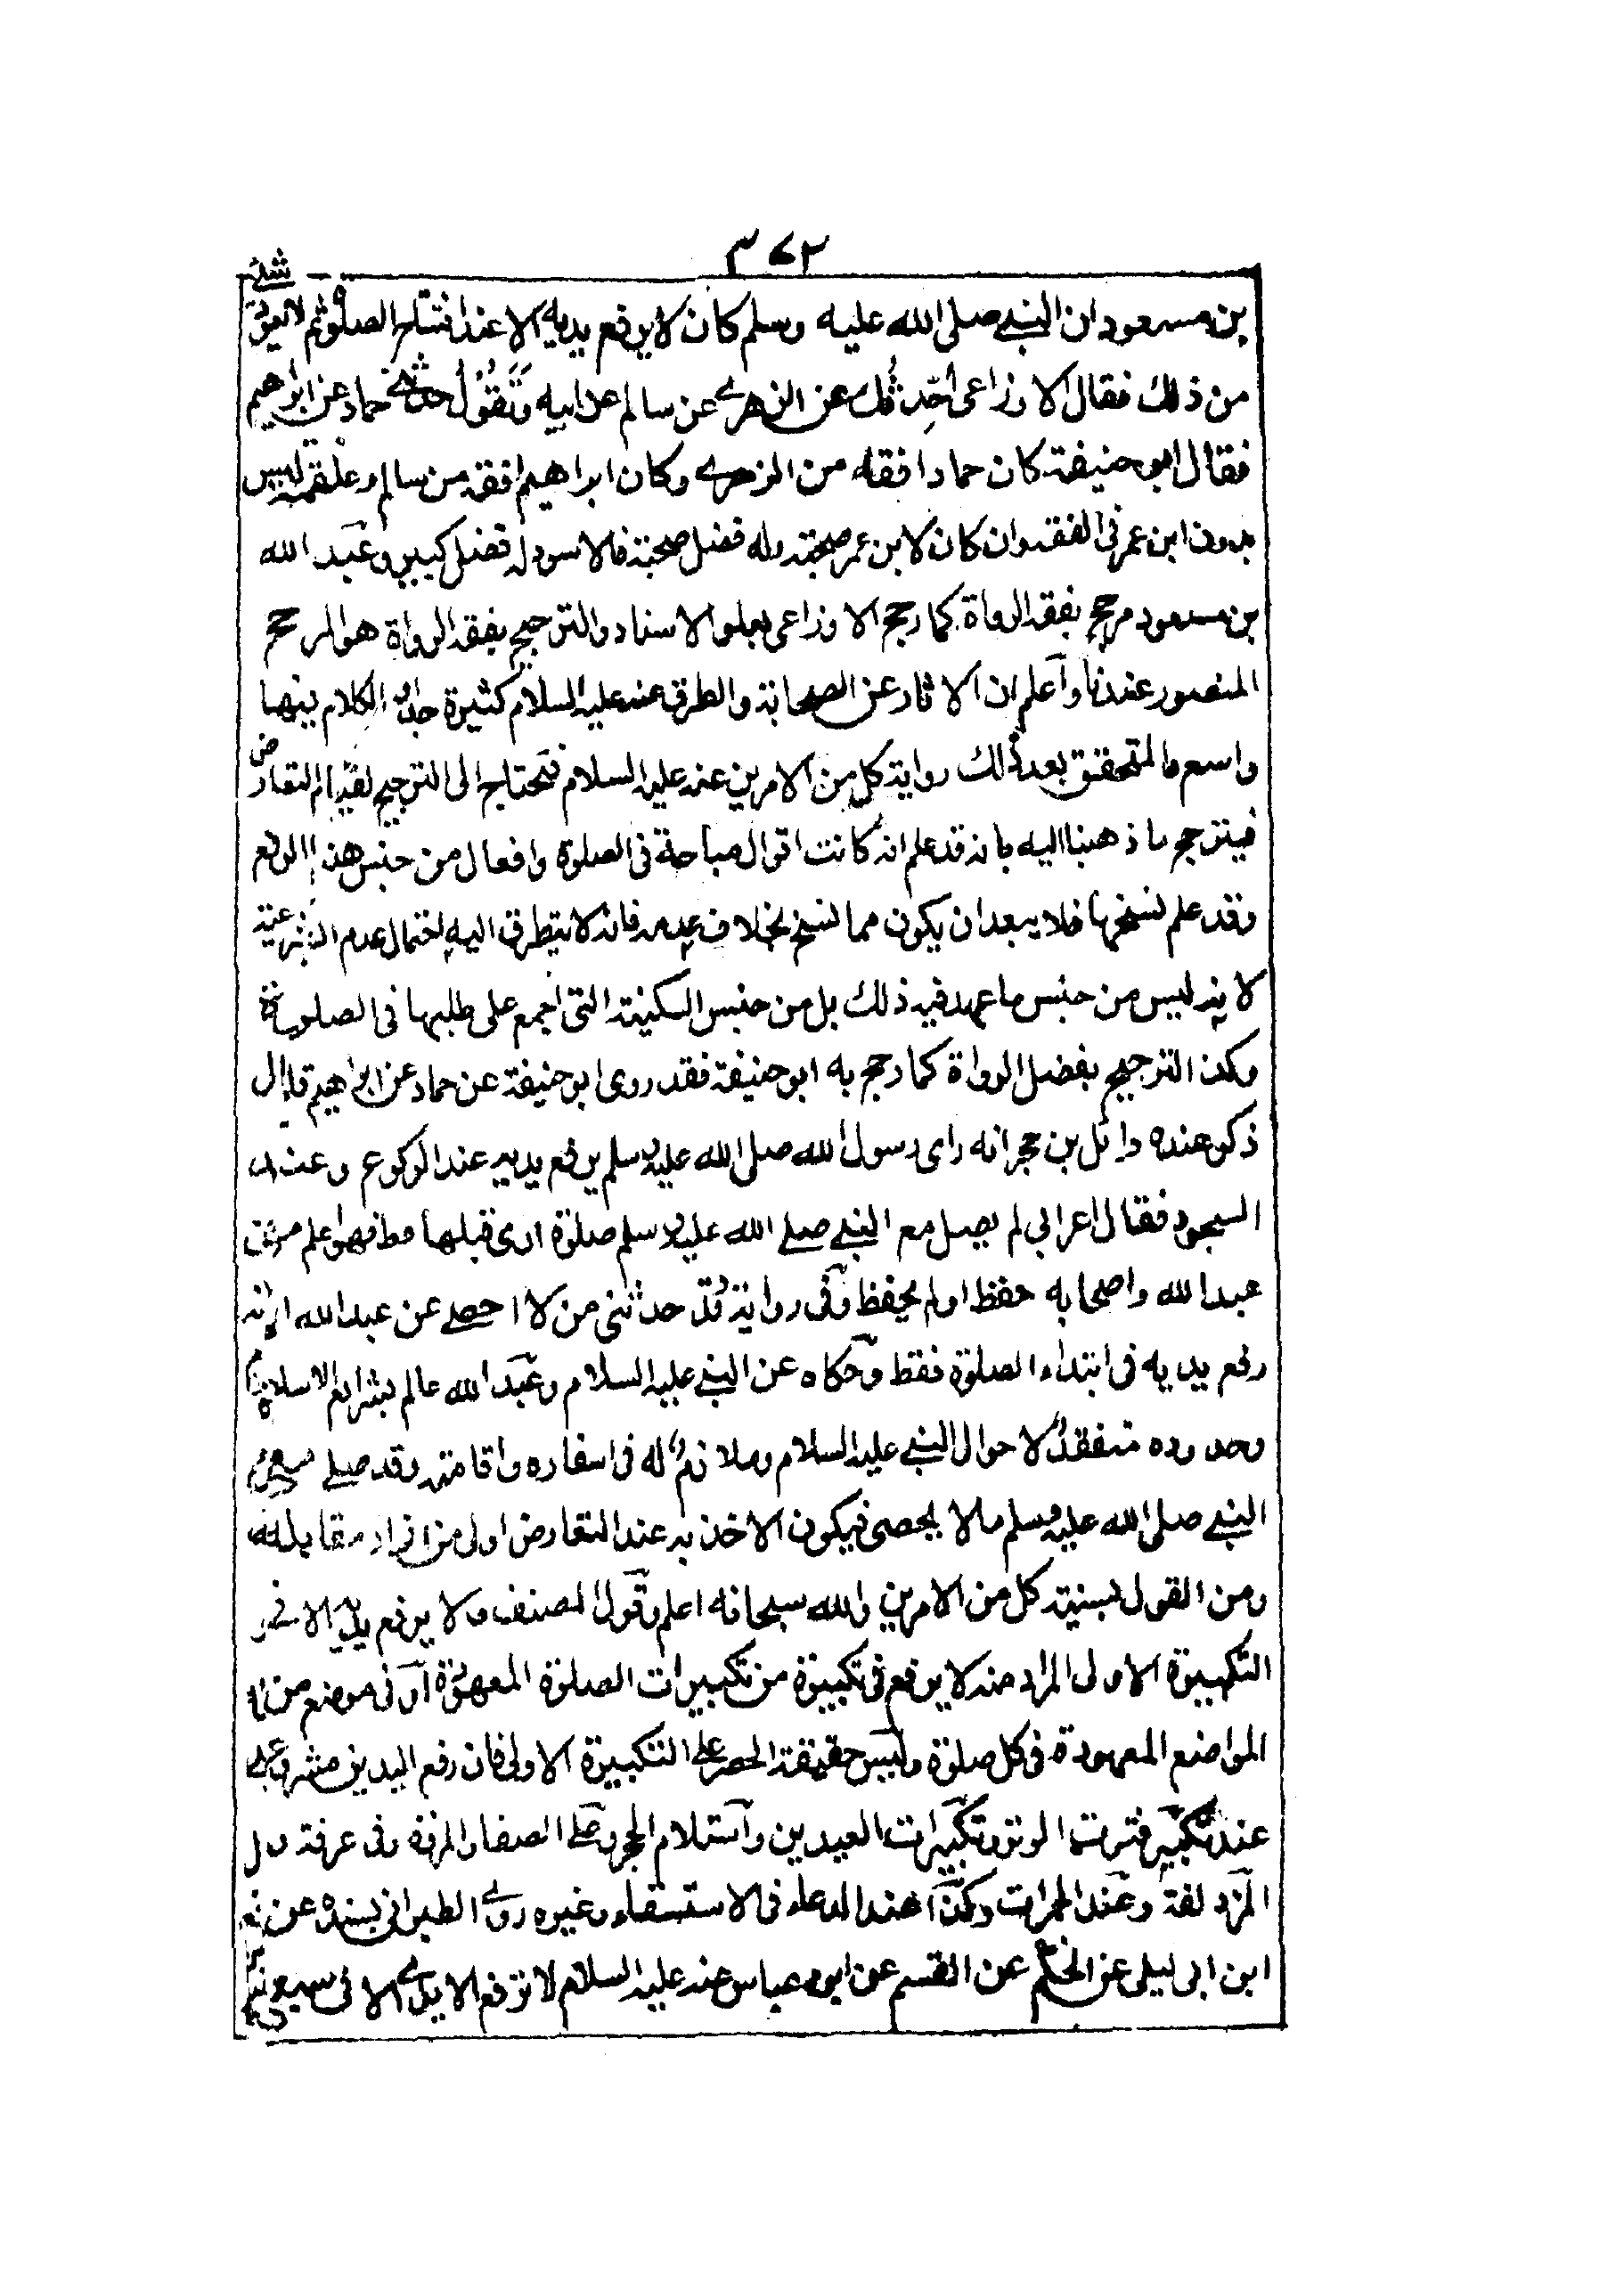 ٣٧٢
بن مسعود ان النبي صلى الله عليه وسلم كان لا يرفع يديه الا عند افتتاح الصلوة ثم لا يعود لشئ
من ذلك فقال الاوزاعى احدثك عن الزهرى عن سالم عن ابيه وتقول حدثنى حماد عن ابراهيم
فقال ابو حنيفة كان حماد افقه من الزهرى وكان ابراهيم افقه من سالم وعلقمة ليس
بدون ابن عمر فى الفقه وان كان لابن عمر صحبة وله فضل صحبة فالاسود له فضل كبير وعبد الله
بن مسعود مرجح بفقه الرواة كما رجح الاوزاعى بعلو الاسناد والترجيح بفقه الرواة هو المرجح
المنصور عندنا واعلم ان الاثار عن الصحابة والطرق عنه عليه السلام كثيرة جدا والكلام فيها
واسع فالمتحقق بعد ذلك رواية كل من الامرين عنه عليه السلام فتحتاج الى الترجيح لقيام التعارض
فيترجح ما ذهبنا اليه بانه قد علم انه كانت اقوال مباحة فى الصلوة وافعال من جنس هذا الرفع
وقد علم نسخها فلا يبعد ان يكون مما نسخ بخلاف عدمه فانه لا يتطرق اليه احتمال عدم الشرعية
لانه ليس من جنس ما عهد فيه ذلك بل من جنس السكينة التى اجمع على طلبها فى الصلوة
وكذا الترجيح بفضل الرواة كما رجح به ابو حنيفة فقد روى ابو حنيفة عن حماد عن ابراهيم قال
ذكر عنده وائل بن حجر انه راى رسول الله صلى الله عليه وسلم يرفع يديه عند الركوع وعند
السجود فقال اعرابى لم يصل مع النبى صلى الله عليه وسلم صلوة ارى قبلها قط افهو اعلم من
عبد الله واصحابه حفظ او لم يحفظ وفى رواية قد حدثنى من لا احصى عن عبد الله انه
رفع يديه فى ابتداء الصلوة فقط وحكاه عن النبى عليه السلام وعبد الله عالم بشرايع الاسلام
وحدوده متفقد لاحوال النبى عليه السلام وملازم له فى اسفاره واقامته وقد صلى مع
النبى صلى الله عليه وسلم مالا يحصى فيكون الاخذ به عند التعارض اولى من افراد مقابله
ومن القول بسنية كل من الامرين والله سبحانه اعلم وقول المصنف ولا يرفع يديه الا فى
التكبيرة الاولى المراد منه لا يرفع فى تكبيرة من تكبيرات الصلوة المعهودة او فى موضع من
المواضع المعهودة فى كل صلوة وليس حقيقة الحصر على التكبيرة الاولى فان رفع اليدين مشروع
عند تكبير قنوت الوتر وتكبيرات العيدين واستلام الحجر وعلى الصفا والمروة وفى عرفة و
المزدلفة وعند الجمرات وكذا عند الدعاء فى الاستسقاء وغيره روى الطبرانى بسنده عن
ابن ابى ليلى عن الحكم عن المقسم عن ابن عباس عنه عليه السلام لا ترفع الايدى الا فى سبع